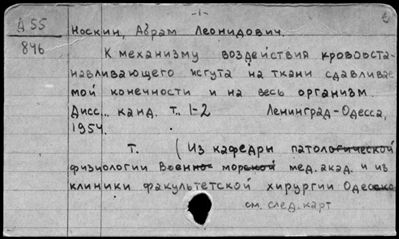 -1-
Д 55
846
Носкин, Абрам Леонидович.
К механизму воздействия кровоста-
навливающего жгута на ткани сдавливае-
мой конечности и на весь организм.
Дисс... канд. т. 1-2 Ленинград-Одесса,
1954.
т. (Из кафедры патологической
физиологии Военно морской мед. акад. и из
клиники факультетской хирургии Одесско
см. след. карт